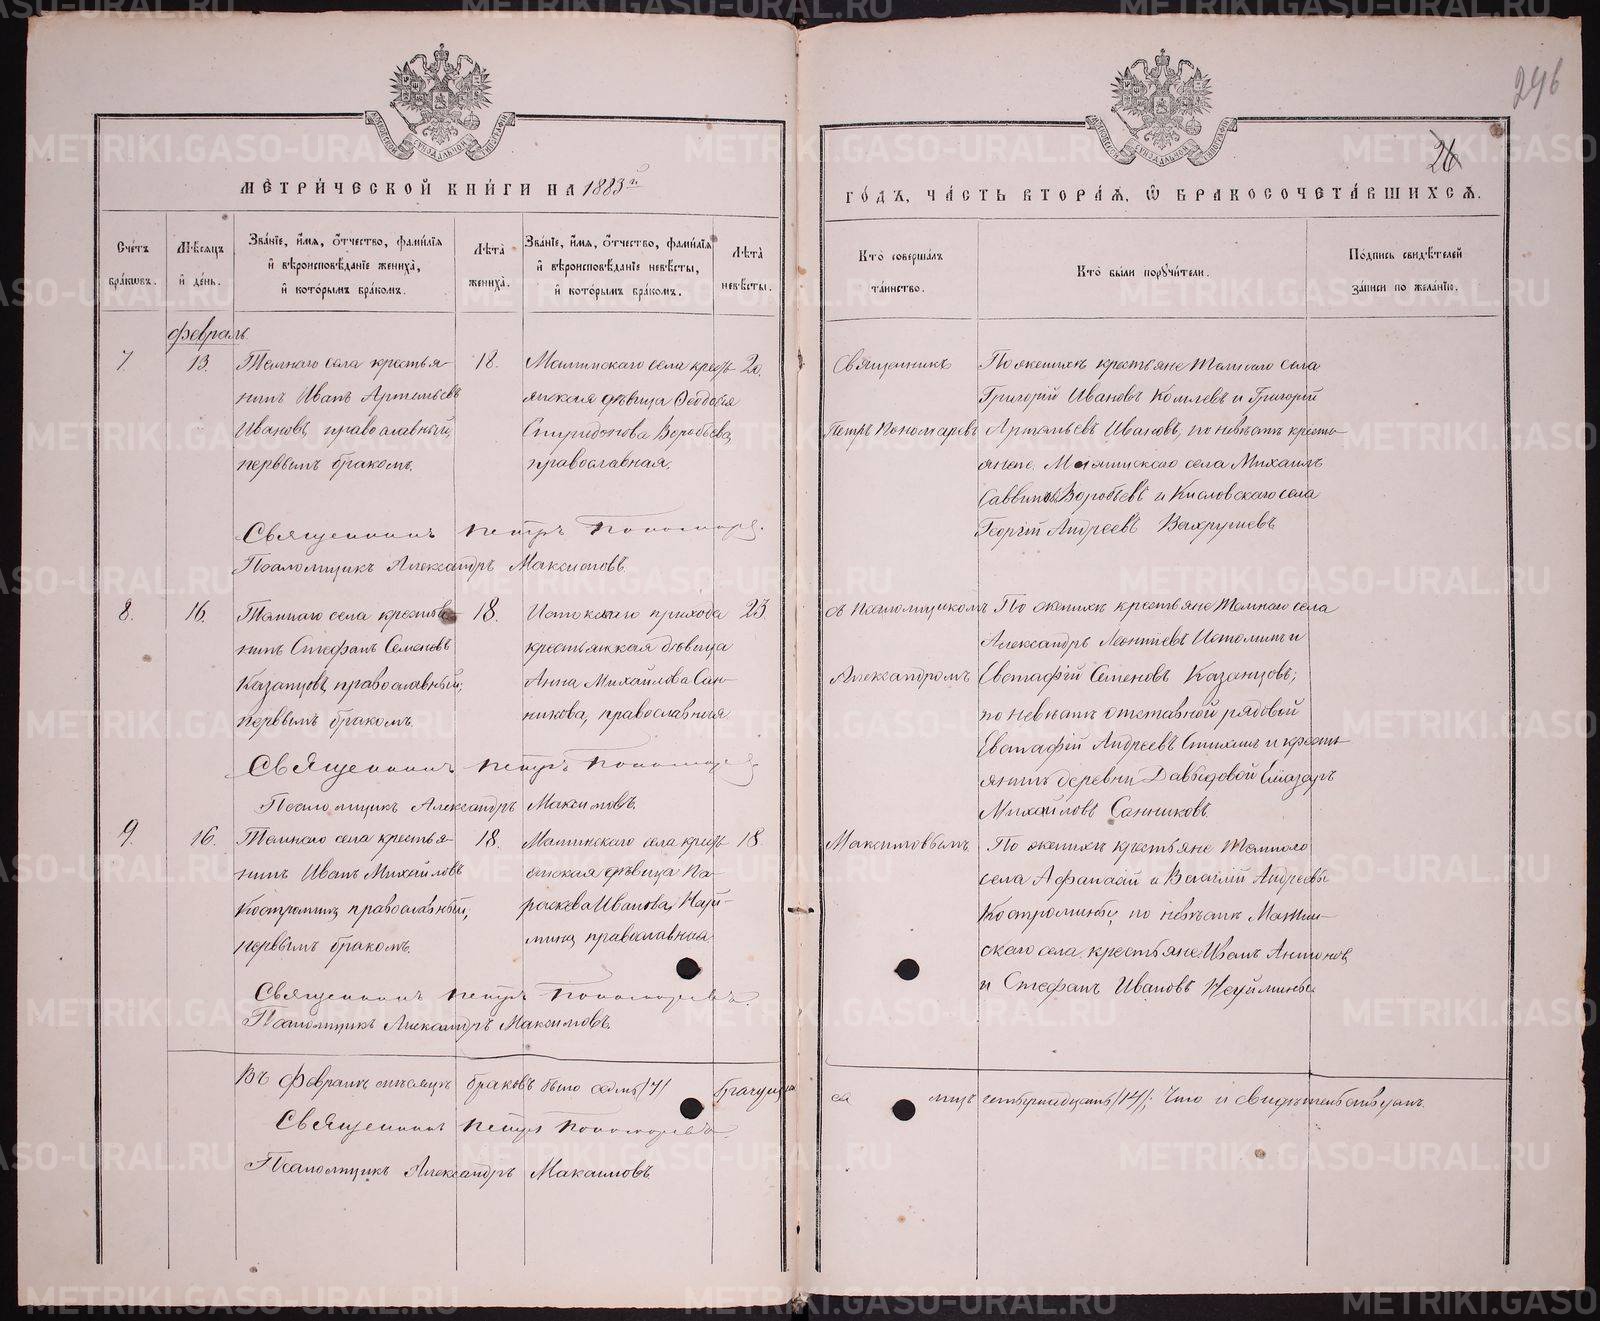 246
26
МЕТРИЧЕСКОЙ КНИГИ НА 1883й
ГОДЪ, ЧАСТЬ ВТОРАЯ, Ѿ БРАКОСОЧЕТАВШИХСЯ.
Счетъ браковъ.
Мѣсяцъ и день.
Званіе, имя, отчество, фамилія
и вѣроисповѣданіе жениха,
и которымъ бракомъ.
Лѣта жениха.
Званіе, имя, отчество, фамилія
и вѣроисповѣданіе невѣсты,
и которымъ бракомъ.
Лѣта невѣсты.
Кто совершалъ таинство.
Кто были поручители.
Подпись свидѣтелей
записи по желанію.
Февраль
7
13.
села крестья-
нинъ Иванъ Артемьевъ
Ивановъ, православный,
первымъ бракомъ.
18.
Маминскаго села кресть-
янская дѣвица Ѳеодосія
Спиридонова Воробьева,
православная.
20.
Священникъ
Петръ Пономаревъ
По женихѣ крестьяне села
Григорій Ивановъ Комлевъ и Григорій
Артемьевъ Ивановъ, по невѣстѣ кресть-
яне Маминскаго села Михаилъ
Саввиновъ Воробьевъ и Кисловскаго села
Георгій Андреевъ Вахрушевъ
Священникъ Петръ Пономарев
Псаломщикъ Александръ Максимовъ
8.
16.
села крестья-
нинъ Стефанъ Семеновъ
Казанцовъ, православный,
первымъ бракомъ.
18.
Истокскаго прихода
крестьянская дѣвица
Анна Михайлова Сан-
никова, православная
23.
съ псаломщикомъ
Александромъ
По женихѣ крестьяне села
Александръ Леонтіевъ Истоминъ и
Евстафій Семеновъ Казанцовъ;
по невѣстѣ отставной рядовой
Евстафій Андреевъ и кресть-
янинъ деревни Давыдовой
Михайловъ Санниковъ.
Священникъ Петръ Пономарев
Псаломщикъ Александръ Максимовъ.
9.
16.
села крестья-
нинъ Иванъ Михайловъ
Костроминъ, православный,
первымъ бракомъ.
18.
Маминскаго села кресть-
янская дѣвица Па-
раскева Иванова Ней-
мина, православная
18
Максимовымъ.
По женихѣ крестьяне
села Афанасій и Василій Андреевы
Костромины, по невѣстѣ Мамин-
скаго села крестьяне Иванъ Антоновъ
и Стефанъ Ивановъ Неймины
Священникъ Петръ Пономаревъ.
Псаломщикъ Александръ Максимовъ.
Въ Февралѣ мѣсяцѣ браковъ было семь /7/ брачущихся лицъ четырнадцать /14/; Что и свидѣтельствуемъ.
Священникъ Петръ Пономаревъ
Псаломщикъ Александръ Максимовъ
METRIKI.GASO-URAL.RU